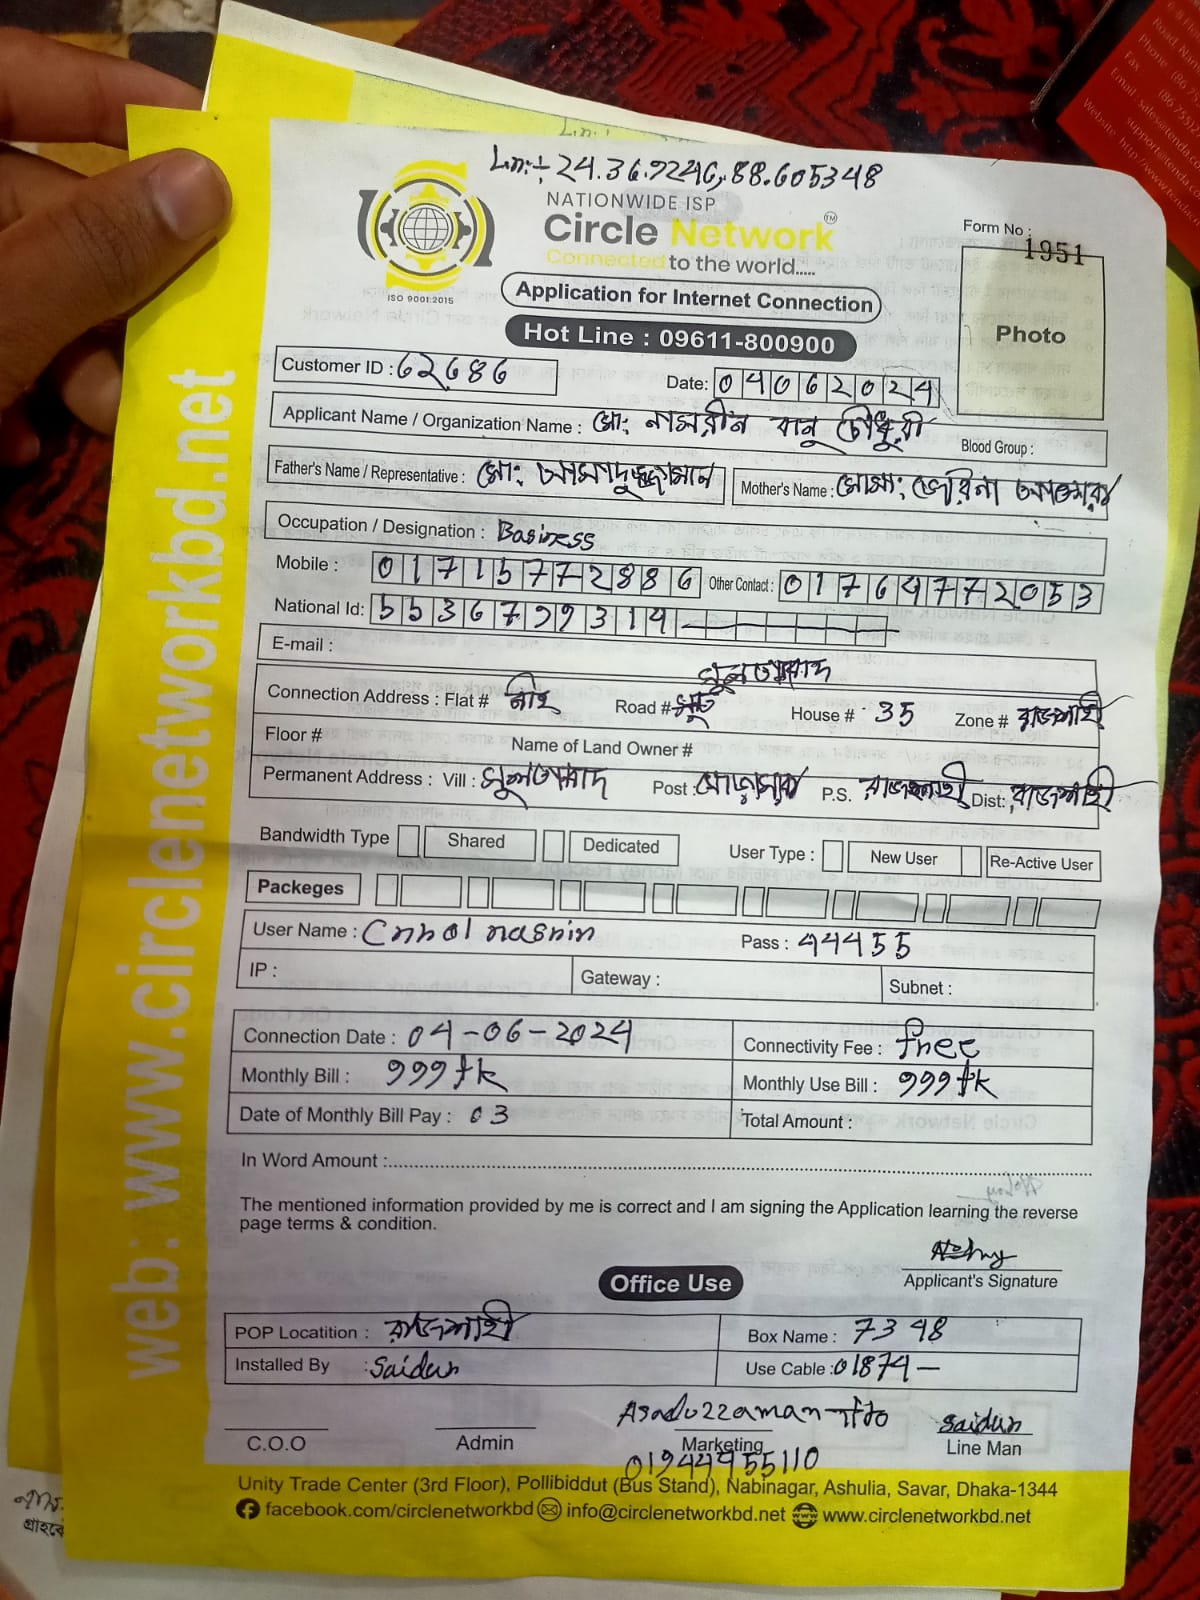 Ln:÷24.36.9246,.88.605348
NATIONWIDE ISP
Circle Network TM
Connected to the world.....
ISO 9001:2015
Form No : 1951
Application for Internet Connection
Photo
Hot Line : 09611-800900
Customer ID : 62686
Date: 04062024
Applicant Name / Organization Name : মো: নাসরীন বানু চৌধুরী Blood Group :
Father's Name / Representative : মো: আসাদুজ্জামান Mother's Name : মোসা: জেরিনা
Occupation / Designation : Business
Mobile : 01715772886 Other Contact : 01764772053
National Id: 5536799314
E-mail :
সুলতানাবাদ
Connection Address : Flat # Road # House # 35 Zone # রাজশাহী
Floor # Name of Land Owner #
Permanent Address : Vill : সুলতানাবাদ Post : ঘোড়ামারা P.S. রাজশাহী Dist: রাজশাহী
Bandwidth Type Shared Dedicated User Type : New User Re-Active User
Packeges
User Name : Cnhol nasrin Pass : 44455
IP : Gateway : Subnet :
Connection Date : 04-06-2024 Connectivity Fee : free
Monthly Bill : 999 tk Monthly Use Bill : 999 tk
Date of Monthly Bill Pay : 03 Total Amount :
In Word Amount :
The mentioned information provided by me is correct and I am signing the Application learning the reverse
page terms & condition.
Applicant's Signature
Office Use
POP Locatition : রাজশাহী Box Name : 7348
Installed By : Saidur Use Cable : 01874—
Asaduzzaman saidur
C.O.O Admin Marketing Line Man
01944955110
Unity Trade Center (3rd Floor), Pollibiddut (Bus Stand), Nabinagar, Ashulia, Savar, Dhaka-1344
facebook.com/circlenetworkbd info@circlenetworkbd.net www.circlenetworkbd.net
web: www.circlenetworkbd.net